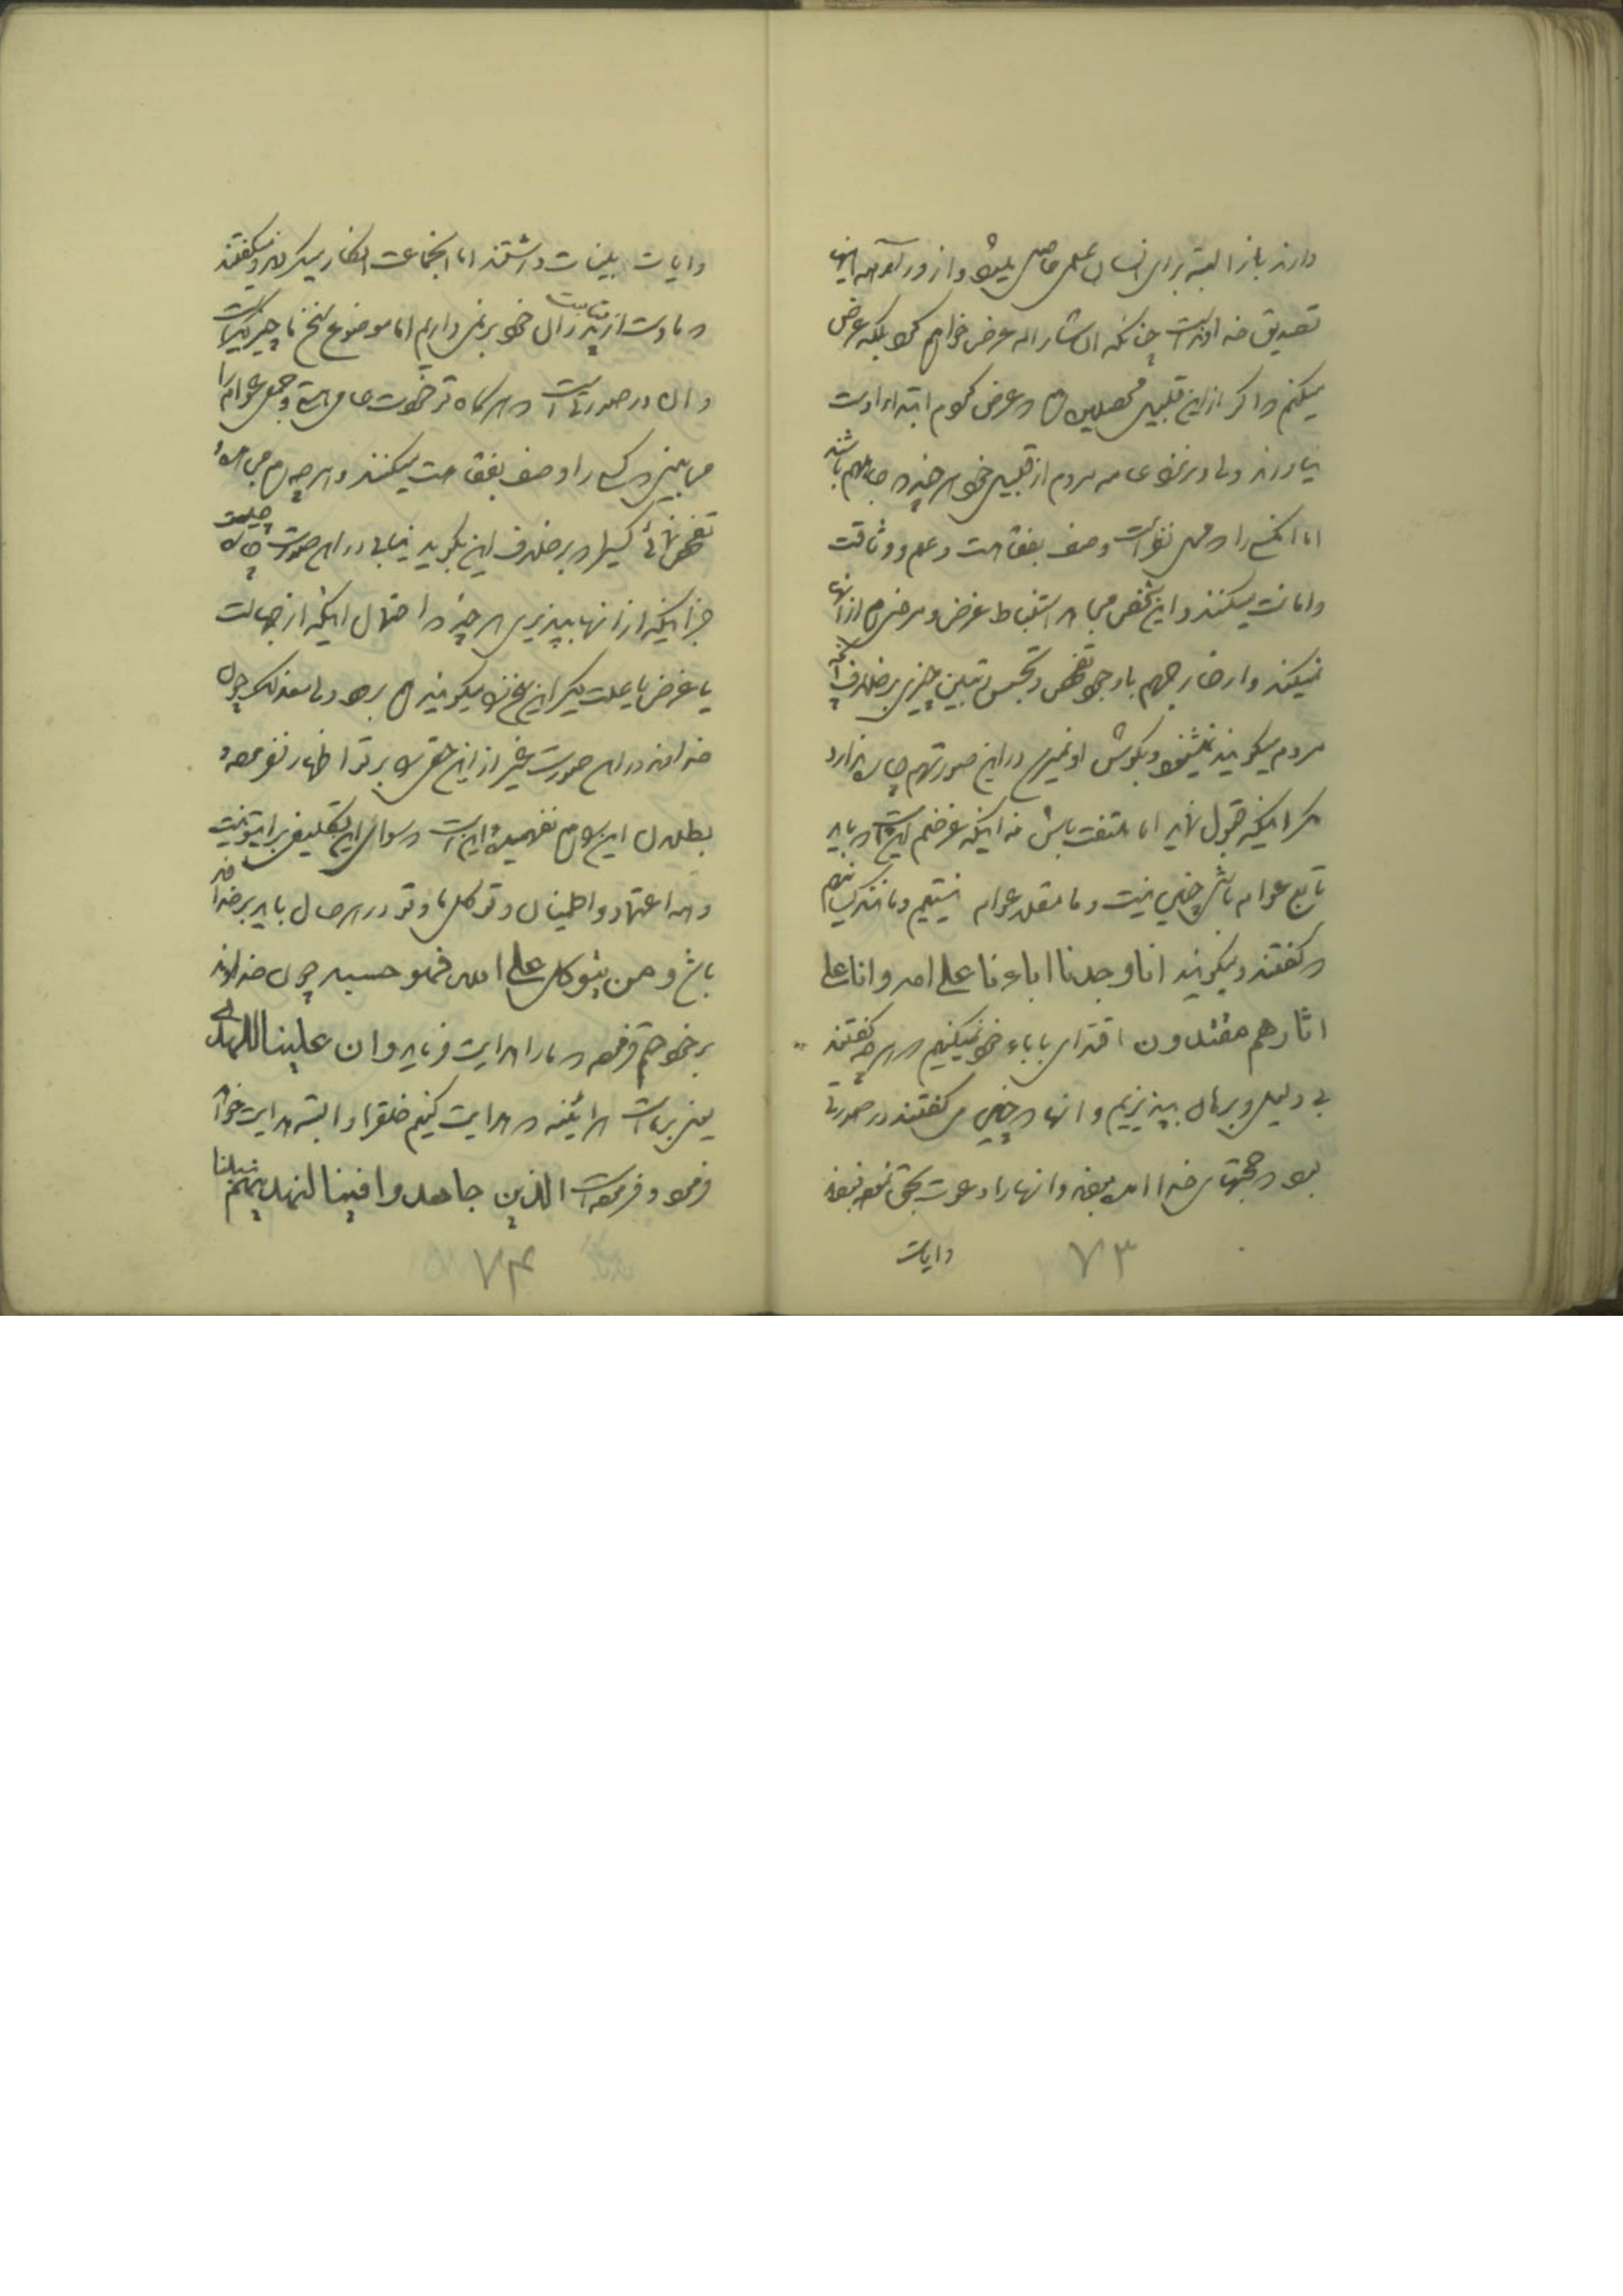 دارند باز البته برای انسان علمی حاصل میشود و از ورای همه اینها
تصدیق خداوند است چنانکه ان شاء اله عرض خواهم کرد بلکه عرض
میکنم که اگر از این قبیل محصلین هم که عرض کردم ابتداء ارادت
نیاورند ولی در نزد عامه مردم از قبیل خود هر چند که جاهل هم باشند
اما انکس را که محل نظر است وصف بفقاهت و علم و وثاقت
و امانت میکنند و این شخص می‌بیند استنباط غرض و مرضی هم از آنها
نمیکند و از خارج هم با وجود تفحص و تجسس و تبین چیزی بر خلاف آنچه
مردم میگویند نمیشنود و بگوش او نمیرسد در این صورت هم چاره ندارد
مگر اینکه قبول نماید اما ملتفت باش نه اینکه غرضم این است که باید
تابع عوام باشی چنین نیست و ما مقلد عوام نیستیم و مانند کسانی نیستیم
که گفتند و میگویند انا وجدنا اباءنا علی امه و انا علی
اثارهم مقتدون اقتدای باباء خود نمیکنیم که هر چه گفتند
بی دلیل و برهان بپذیریم و آنها که چنین می گفتند در صورتی
بود که حجتهای خدا امده بودند و انها را دعوت بحق نموده بودند
و ایات
۷۳
و ایات بینات داشتند اما انجماعت انکار میکردند و میگفتند
که ما دست از متابعت پدران خود بر نمی داریم اما موضوع سخن ما چیز دیگر است
و ان در صورتی است که هرگاه تو خودت عامی هستی و جمیع عوام را
می بینی که کسی را وصف بفقاهت میکنند و هر چه هم می خواهی
تفحص نمائی کسی را که بر خلاف این بگوید نیابی در این صورت چاره چیست
جز اینکه از انها بپذیری هر چند که احتمال اینکه از جهالت
یا غرض یا بعلت دیگر این سخن را میگویند هم برود ولی معذلک چون
خداوند در این صورت غیر از این حقی را بر تو اظهار نفرموده و
بطلان این را هم نفهمیده این است که سوای این تکلیفی برای تو نیست
و همه اعتماد و اطمینان و توکل ما و تو در هر حال باید بر خداوند
باشد و من یتوکل علی الله فهو حسبه چون خداوند
بر خود حتم فرموده که ما را هدایت فرماید و ان علینا للهدی
یعنی بر ماست هر اینه که هدایت کنیم خلق را و البته هدایت خواهد
فرمود و فرموده است الذین جاهدوا فینا لنهدینهم سبلنا
۷۴